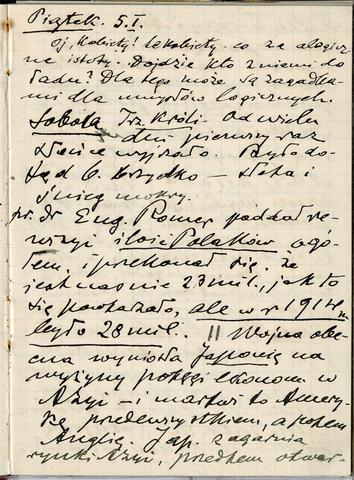 Piątek. 5.I.
Oj, kobiety! Te kobiety. co za alogicz
ne istoty. Dojdzie kto z niemi do
ładu? Dlatego może są zagadka
mi dla umysłów logicznych.
Sobota Trz. Króli. Od wielu
dni pierwszy raz
słońce wyjrzało. Było do-
tąd b. brzydko —
śnieg mokry.
pr. dr Eug. Romer poddał re-
wizyi ilość Polaków ogó-
łem, i przekonał się, że
jest nas nie 23 mil., jak to
się powtarzało, ale w r 1914
było 28 mil. || Wojna obe-
cna wyniosła Japonię na
wyżyny potęgi ekonom. w
Azyi — i martwi to Amery-
kę przedewszystkiem, a potem
Anglię. Jap. zagarnia
rynki Azyi, przedtem otwar-